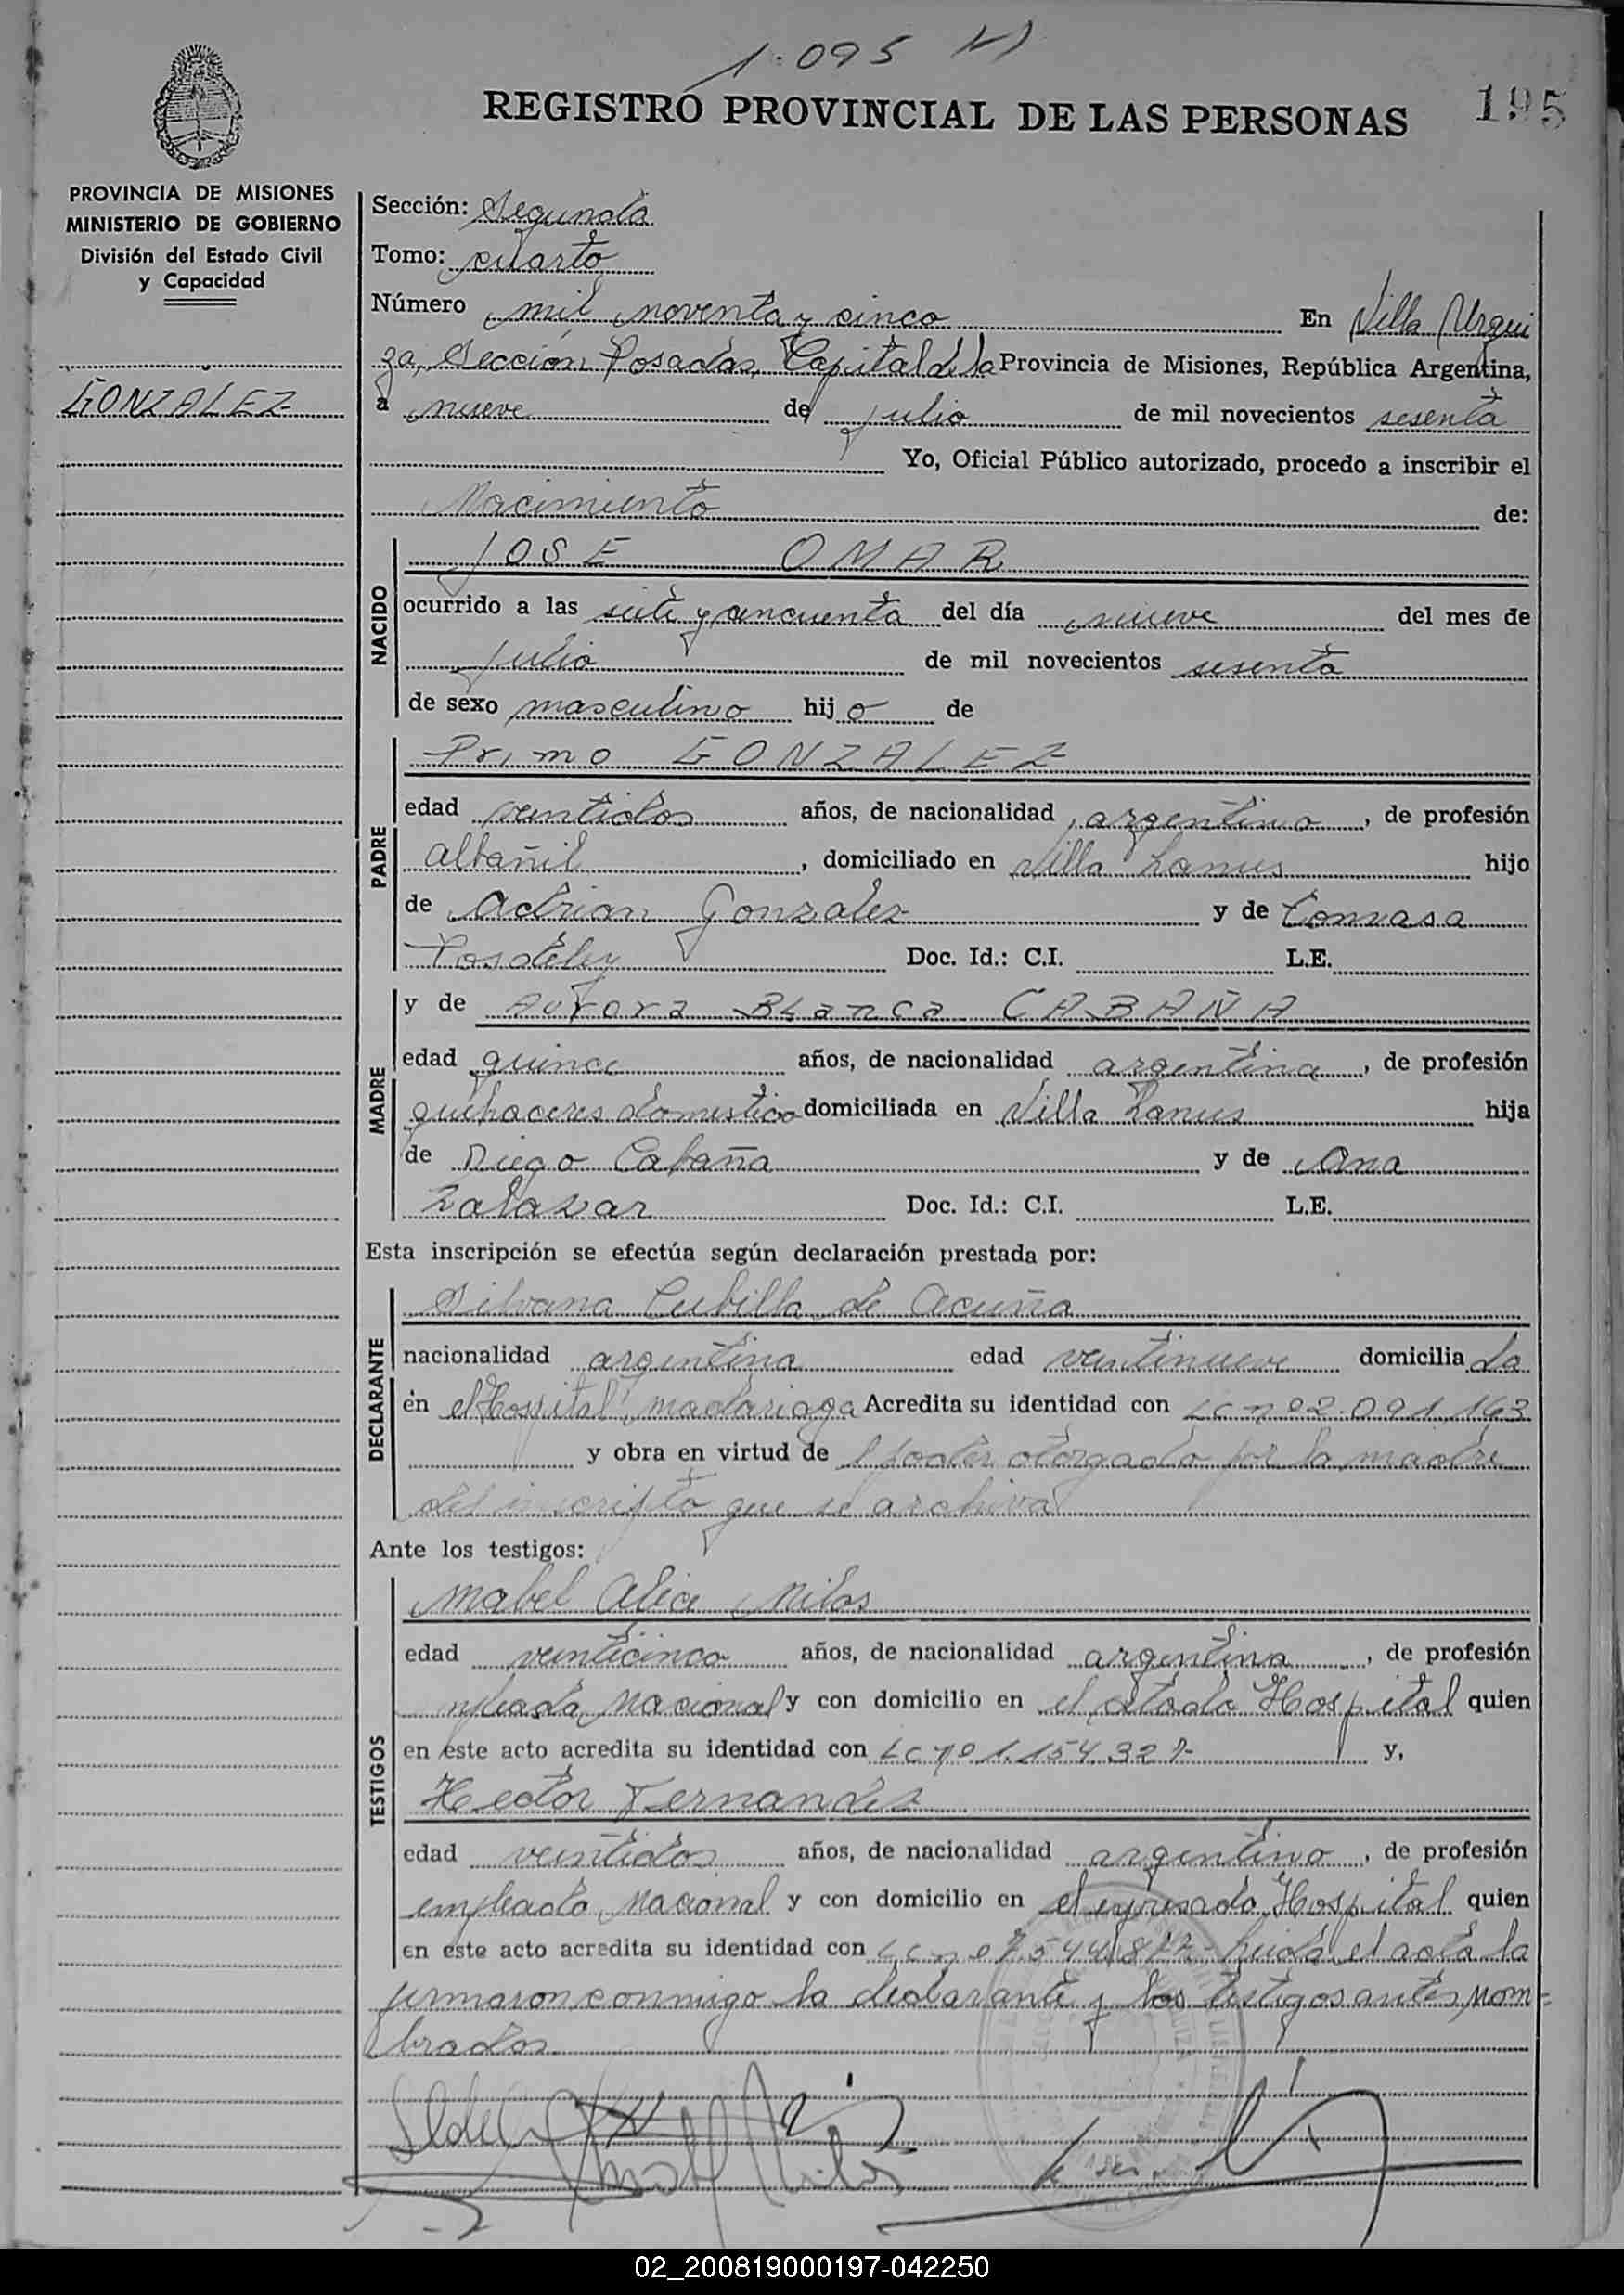 1.095
REGISTRO PROVINCIAL DE LAS PERSONAS
195
PROVINCIA DE MISIONES
MINISTERIO DE GOBIERNO
División del Estado Civil
y Capacidad
GONZALEZ
Sección: Segunda
Tomo: cuarto
Número mil noventa y cinco En Villa Urqui
za, Sección Posadas, Capital de la Provincia de Misiones, República Argentina,
a nueve de julio de mil novecientos sesenta
Yo, Oficial Público autorizado, procedo a inscribir el
Nacimiento de:
NACIDO
JOSE OMAR
ocurrido a las siete y cincuenta del día nueve del mes de
julio de mil novecientos sesenta
de sexo masculino hijo de
PADRE
Primo GONZALEZ
edad ventidos años, de nacionalidad argentino, de profesión
albañil, domiciliado en Villa Lanus hijo
de Adrian Gonzalez y de Tomasa
Doc. Id.: C.I. L.E.
MADRE
y de Aurora Blanca CABAÑA
edad quince años, de nacionalidad argentina, de profesión
quehaceres domestico domiciliada en Villa Lanus hija
de Diego Cabaña y de Ana
Zalazar Doc. Id.: C.I. L.E.
Esta inscripción se efectúa según declaración prestada por:
DECLARANTE
Silvana Cubilla de Acuña
nacionalidad argentina edad ventinueve domiciliada
en el Hospital madariaga Acredita su identidad con LC nº 2.091.163
y obra en virtud de l poder otorgado por la madre
del inscripto que se archiva
Ante los testigos:
TESTIGOS
Mabel Alice Milos
edad veinticinco años, de nacionalidad argentina, de profesión
mpleada Nacional y con domicilio en el citado Hospital quien
en este acto acredita su identidad con LC nº 1.154.327 y,
Hector Fernandez
edad veintidos años, de nacionalidad argentino, de profesión
empleado Nacional y con domicilio en el expresado Hospital quien
en este acto acredita su identidad con 7.544.877 - Leida el acta la
firmaron conmigo la declarante y los testigos antes nom=
brados.
02_200819000197-042250